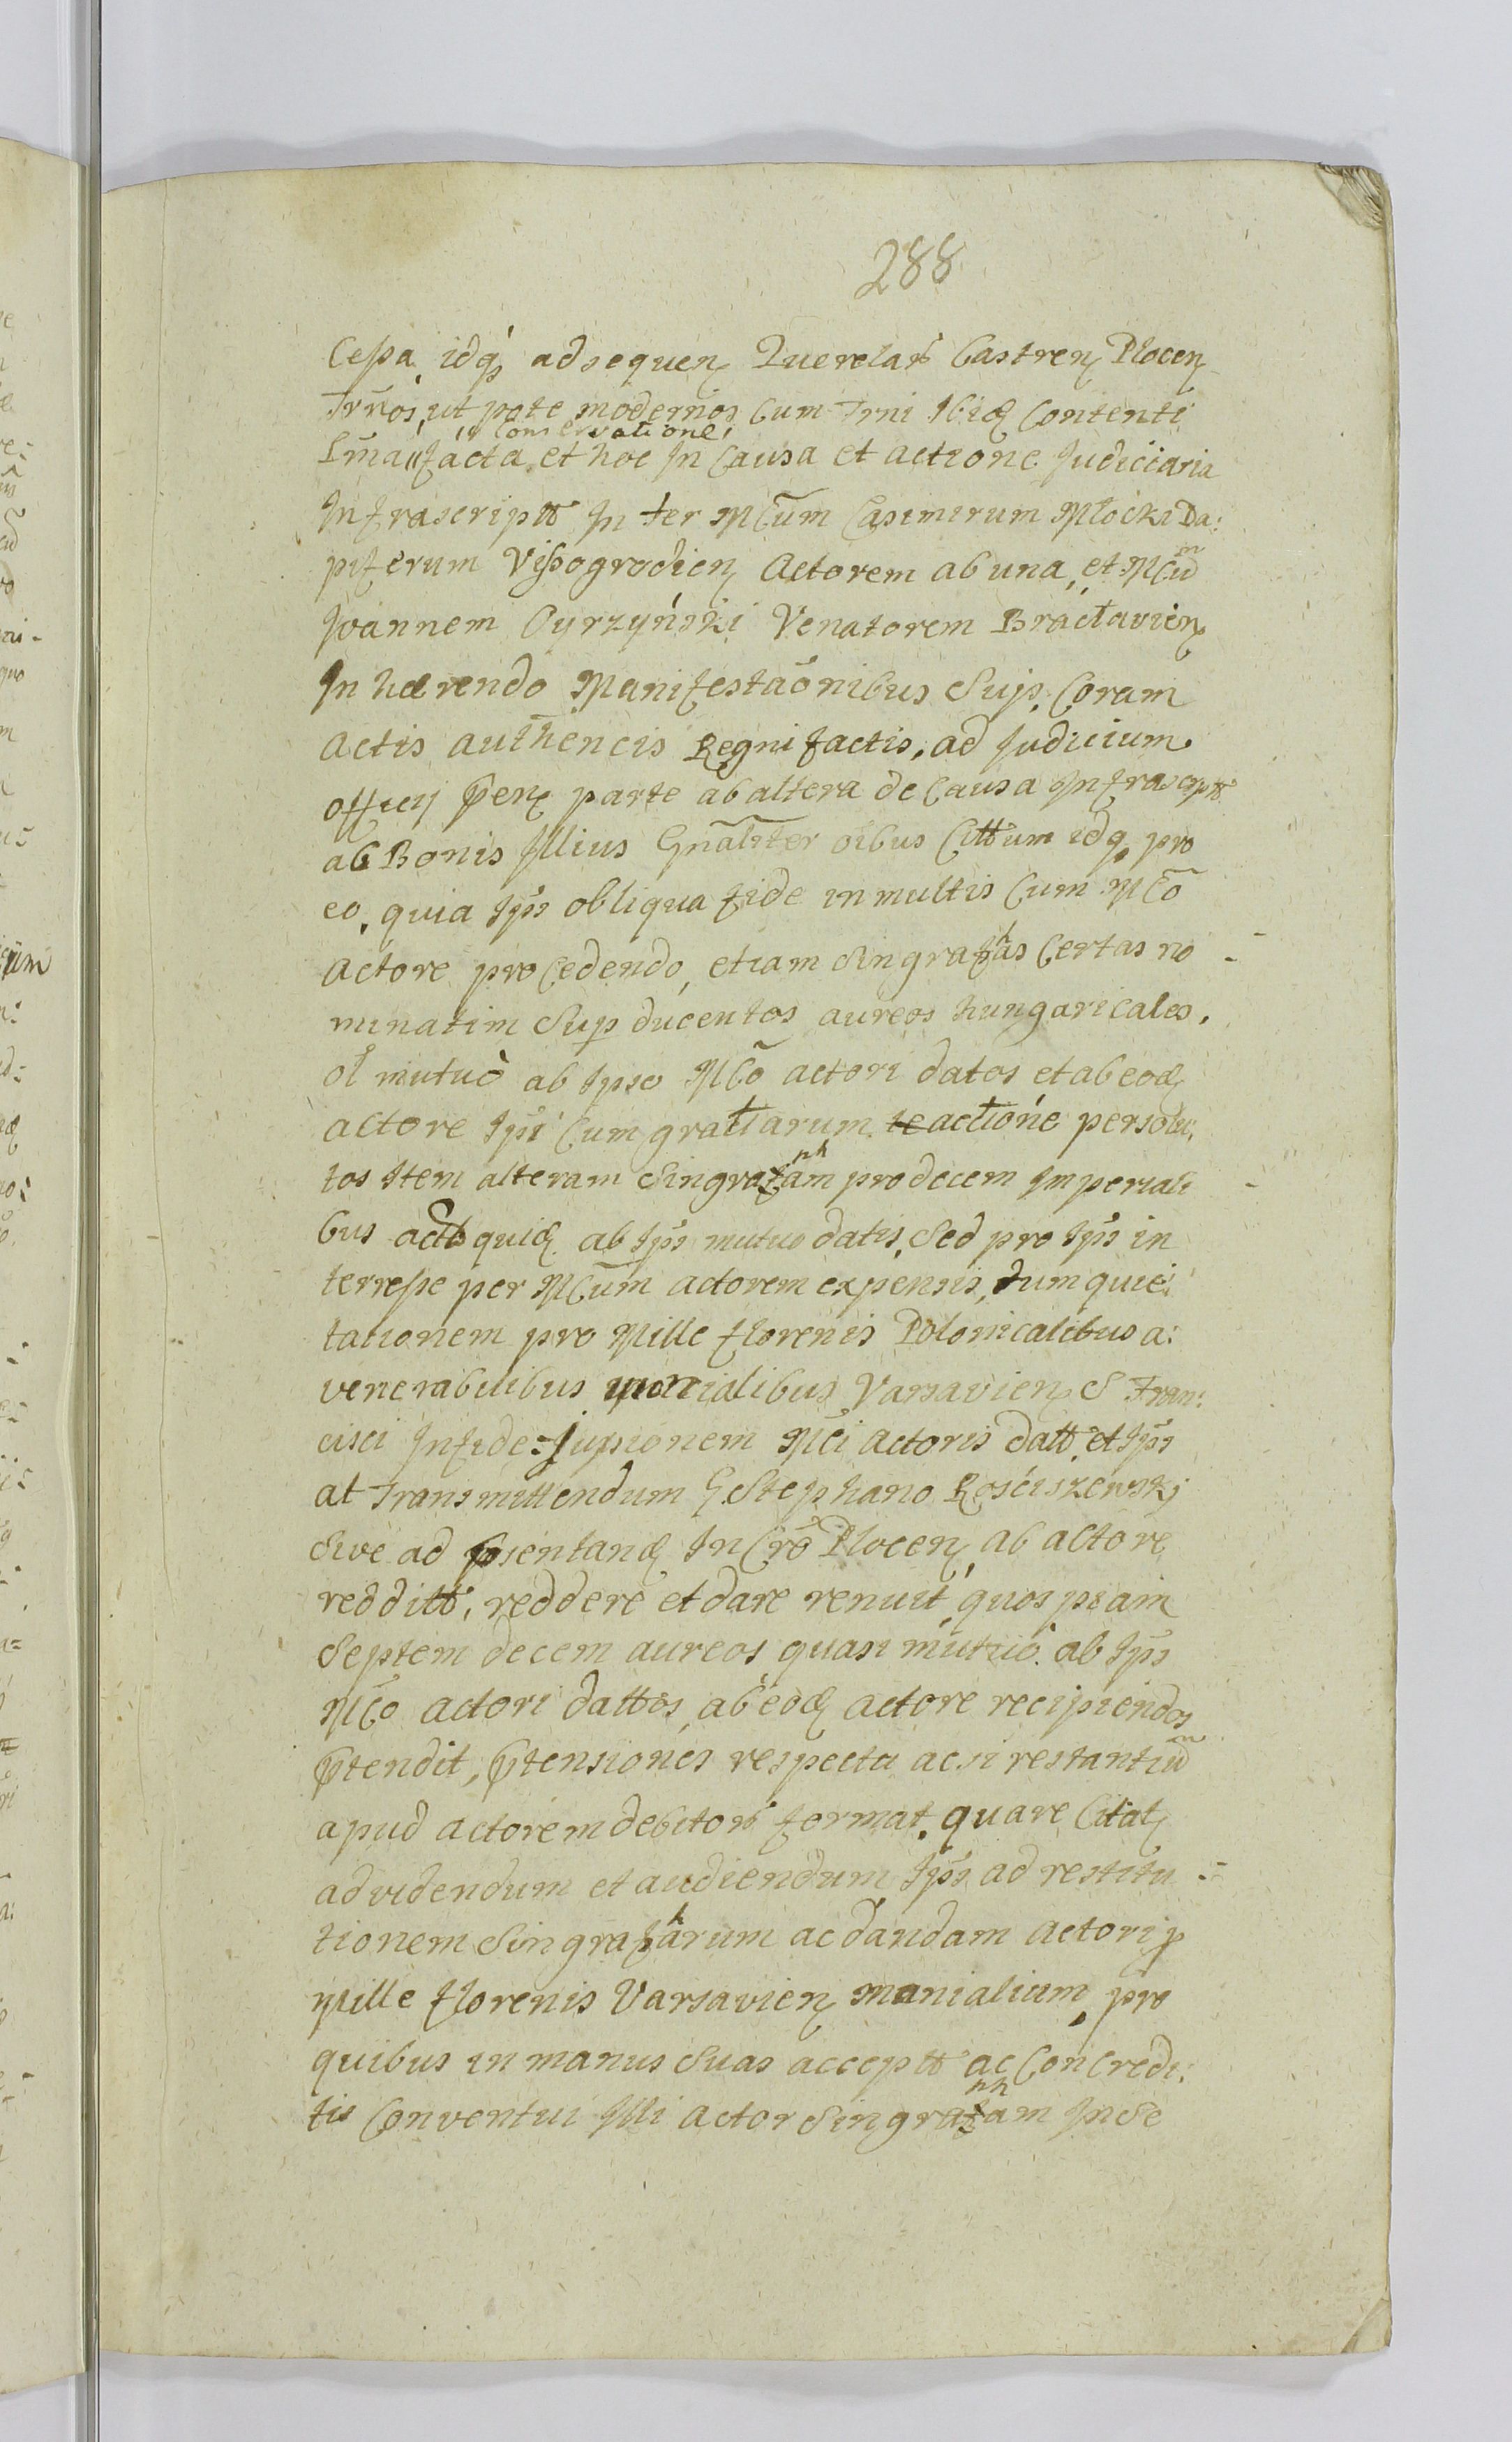 288
Cessa, idq₃ ad sequen Querelar Castren Plocen
Trnos, ut pote modernos Cum Trni Ibid Contenti
" Conservatione,
Lma "facta, et hoc In Causa et actione Judiciaria
Infrascriptt In ter MCum Casimirum Mlocki Da:
piferum Vissogrodien Actorem ab una, et MCum
Joannem Cyrzyński Venatorem Bractavien
In hærendo Manifestaonibus Suis, Coram
actis authencis Regni factis, ad Judicium
officij pen parte ab altera de Causa Infrascrptt
ab Bonis Illius Gnaliter oibus Cittum idq, pro
eo, quia Ips obliqua fide in multis Cum MCo
actore procedendo, etiam Singrafhas Certas no -
minatim Sup ducentos aureos hungaricales,
ol mutuò ab Ipso MCo actori datos et ab eod
actore Ipi Cum gratiarum actione persolu:
tos Item alteram Singrapham pro decem Imperiali -
bus quid ab Ips mutuo datis, Sed pro Ips in
terresse per MCum actorem expensis, tum quie:
tationem pro Mille florenis Polonicalibus a:
venerabilibus monialibus Varsavien S Fran:
cisci In fide=Jussionem MCi actoris datt, et Ips
at Transmittendum G. Stephano Rosciszewski
Sive ad psentand In Cro Plocen, ab actore
redditt, reddere et dare renuit, quospiam
Septem decem aureos quasi mutuò ab Ips
MCo actori dattos, ab eod actore recipiendos
ptendit, ptensiones respectu acsi restantium
apud actorem debitor format, quare Citat
ad videndum et audiendum Ips ad restitu -
tionem Singrafharum ac dandam actori p
Mille florenis Varsavien monialium, pro
quibus in manus Suas acceptt ac Concredi:
tis Conventui Illi actor Singrapham In Se